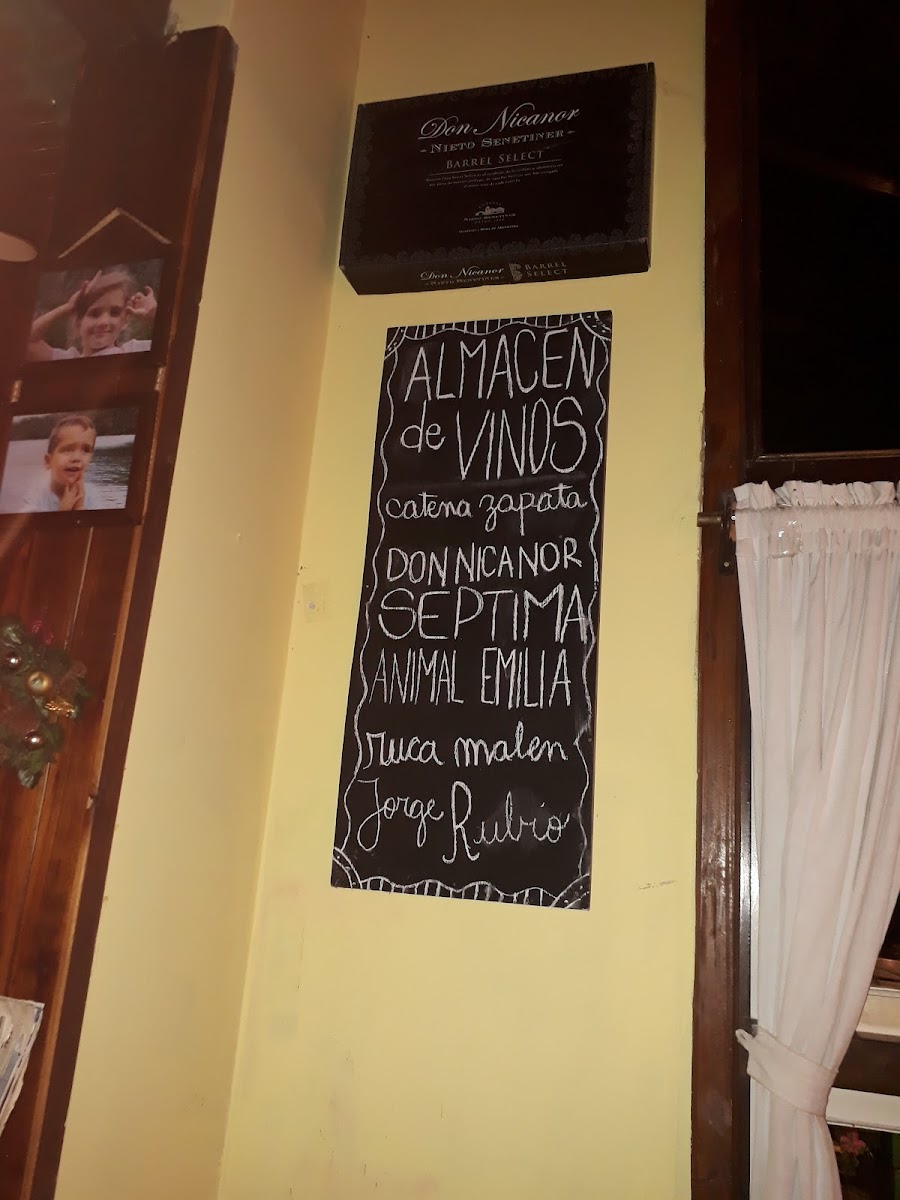 Don Nicanor
NIETO SENETINER
BARREL SELECT
NIETO SENETINER
Don Nicanor
NIETO SENETINER
BARREL
SELECT
ALMACEN
de VINOS
catena zapata
DON NICANOR
SEPTIMA
ANIMAL EMILIA
ruca malen
Jorge Rubio